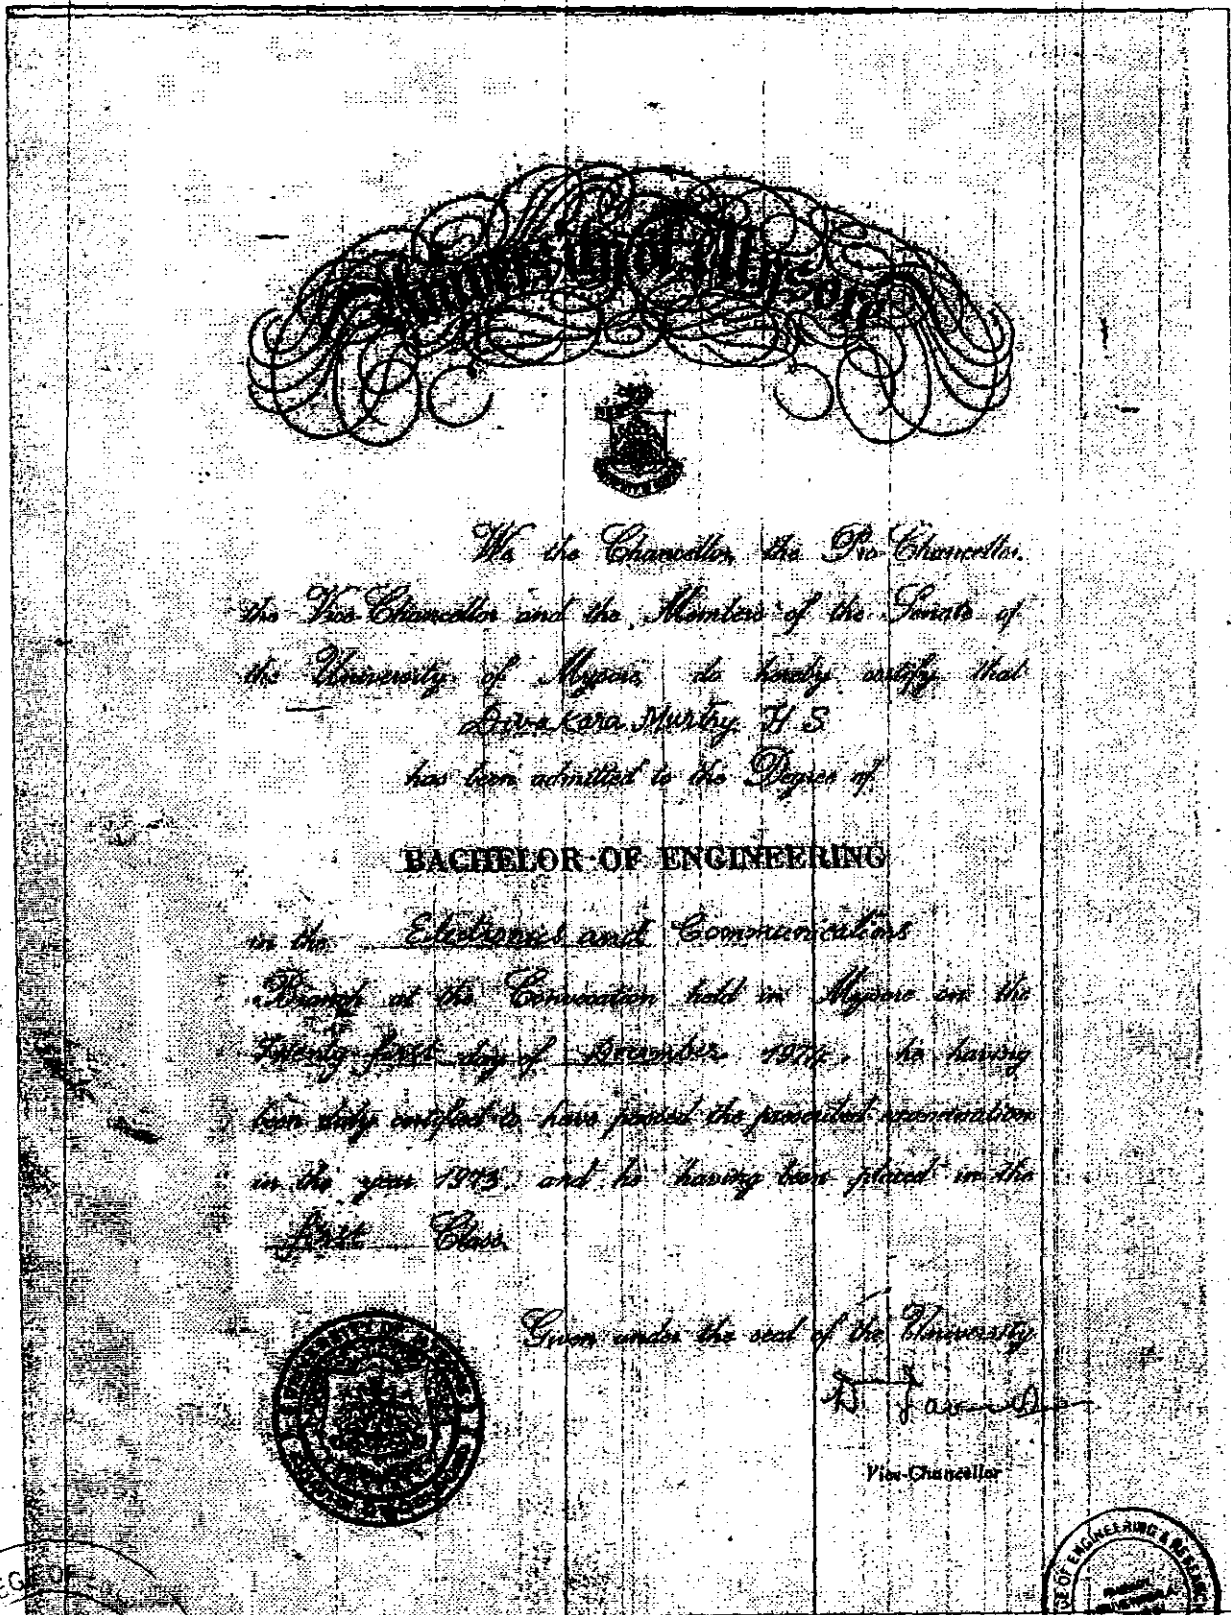 University of Mysore
We the Chancellor, the Pro-Chancellor,
the Vice-Chancellor and the Members of the Senate of
the University of Mysore, do hereby certify that
Divakara Murthy H S
has been admitted to the Degree of
BACHELOR OF ENGINEERING
in the Electronics and Communications
Branch at the Convocation held in Mysore on the
Twenty first day of December 1974, he having
been duly certified to have passed the prescribed examination
in the year 1973, and he having been placed in the
first Class.
Given under the seal of the University
Vice-Chancellor
OF ENGINEERING &